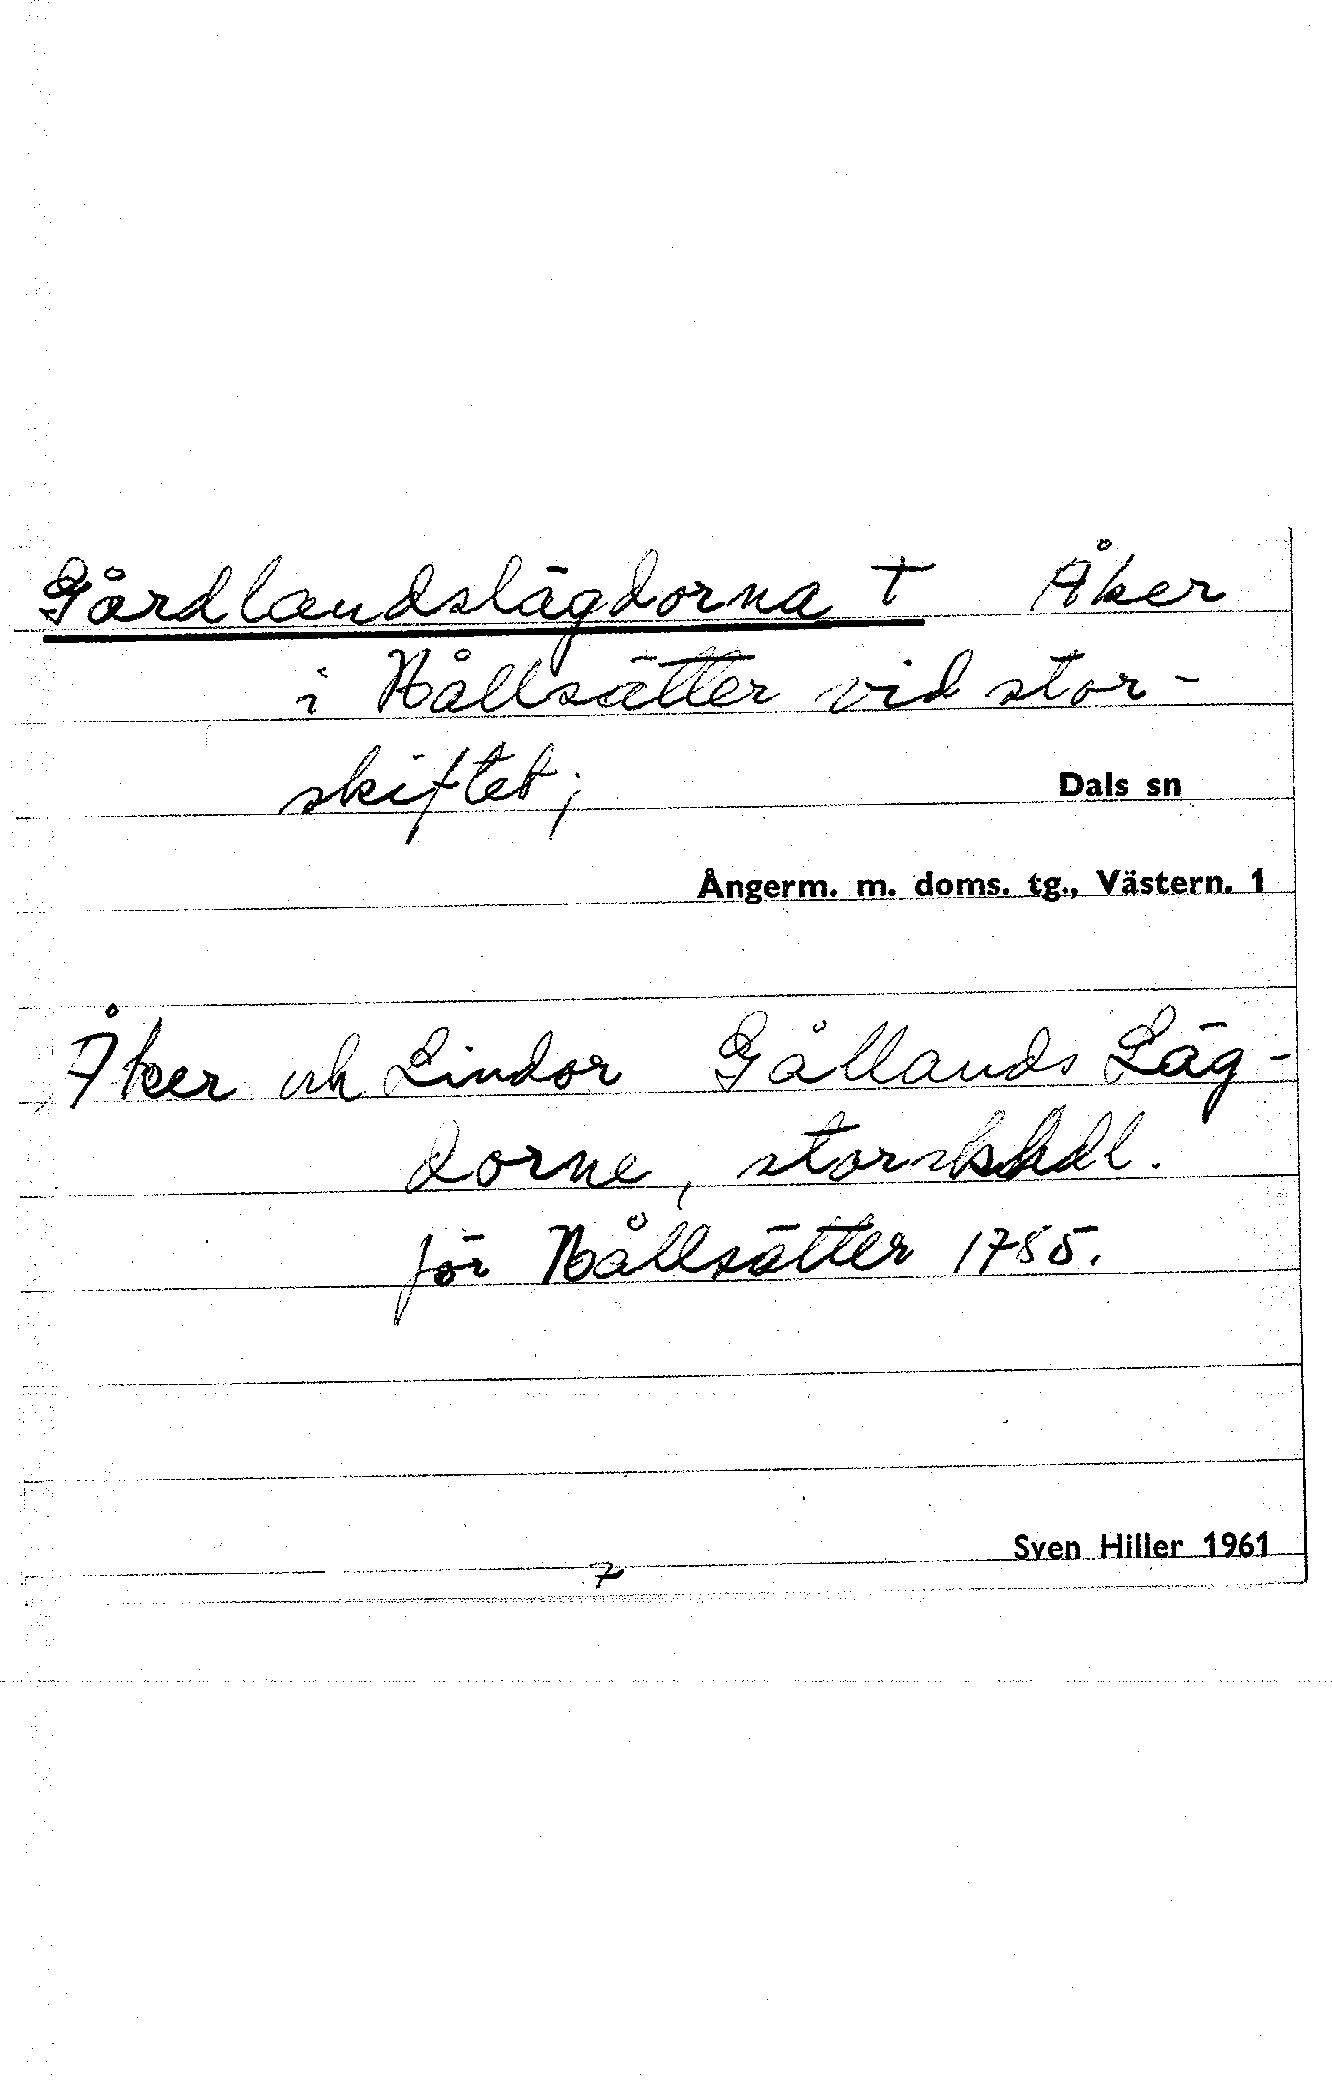 Gårdlandslägdorna † Åker
i Hållsätter vid stor-
skiftet;
Dals sn
Ångerm. m. doms. tg., Västern. 1
Åker och Lindor Gållands Läg-
dorne, storskhdl.
för Hållsätter 1785.
Sven Hiller 1961
7